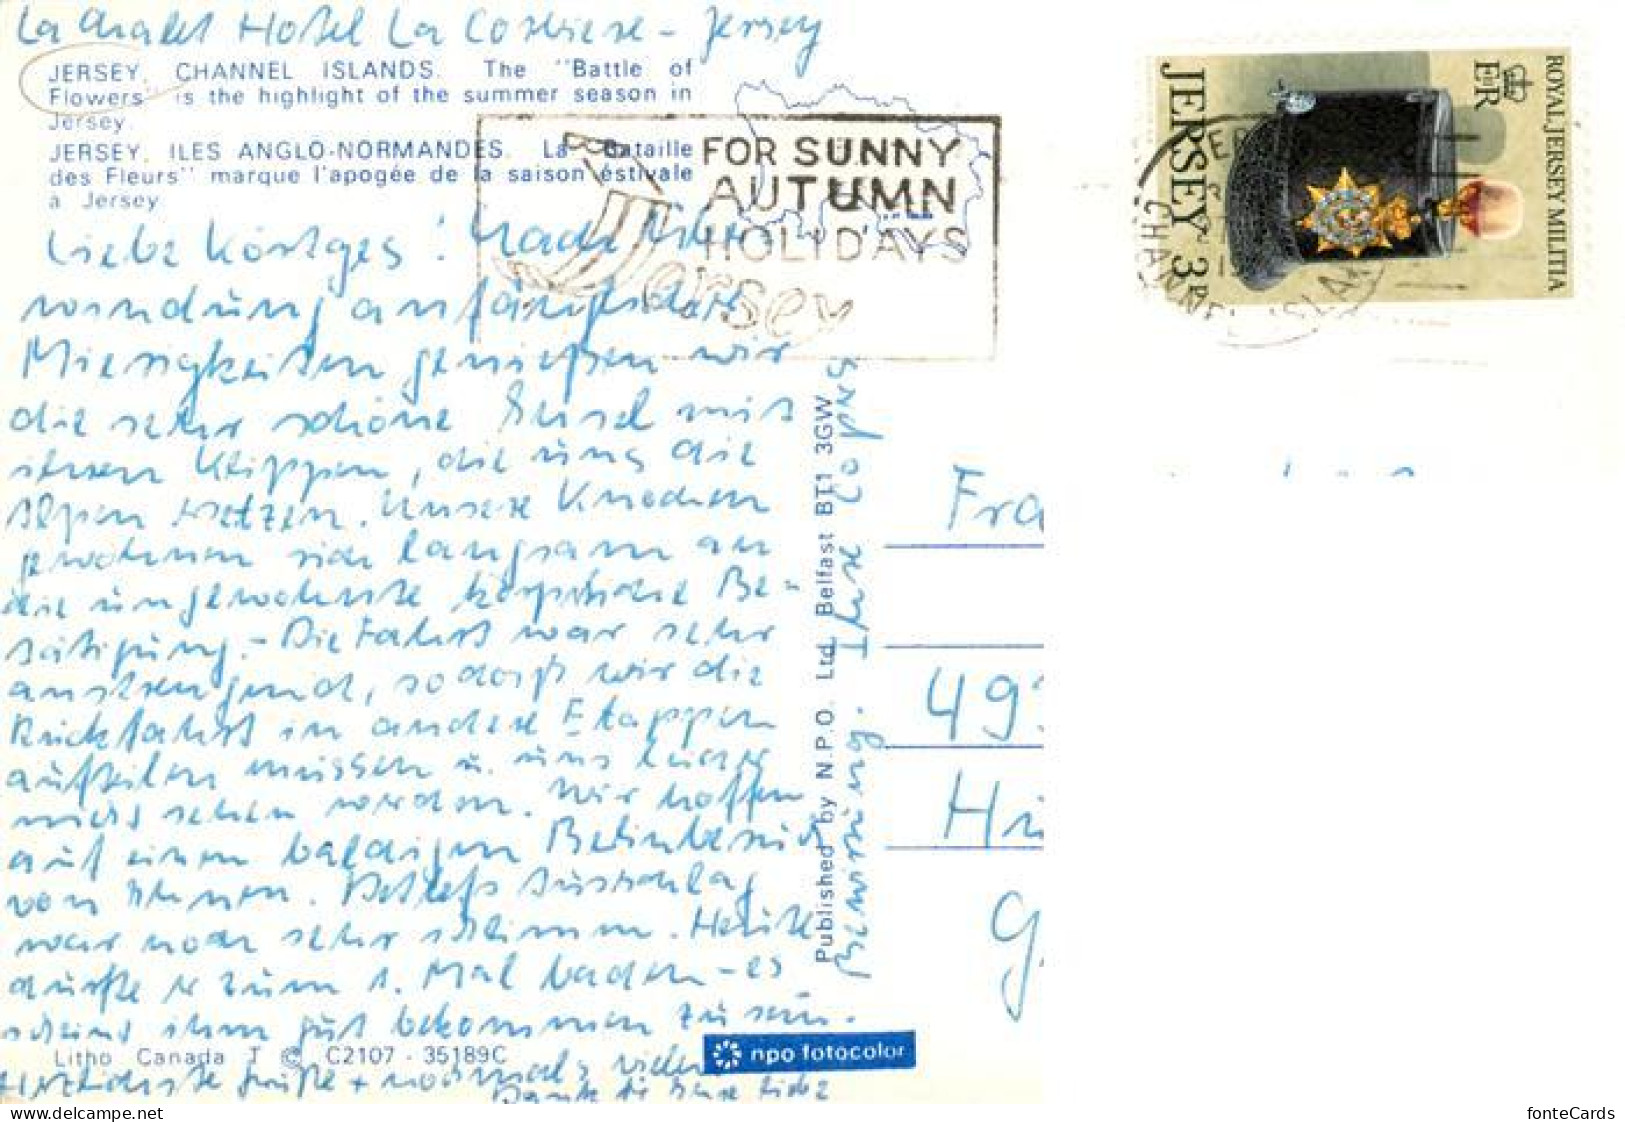 La Chalet Hotel La Corbiere - Jersey
JERSEY, CHANNEL ISLANDS. The "Battle of
Flowers" is the highlight of the summer season in
Jersey
JERSEY, ILES ANGLO-NORMANDES. La Bataille
des Fleurs" marque l'apogée de la saison éstivale
a Jersey
FOR SUNNY
AUTUMN
HOLIDAYS
Jersey
ROYAL JERSEY MILITIA
E II R
JERSEY 3P
JERSEY
CHANNEL ISLANDS
Liebe Köntges! Nach Über
windung anfänglicher
Miesigkeiten genießen wir
die sehr schöne Insel mit
ihren Klippen, die uns die
Alpen ersetzen. Unsere Knochen
gewöhnen sich langsam an
die ungewohnte körperliche Be-
tätigung. - Die Fahrt war sehr
anstrengend, so daß wir die
Rückfahrt in andere Etappen
aufteilen müssen u. uns leider
nicht sehen werden. Wir hoffen
auf einen baldigen
von Ihnen. Detlefs Ausschlag
war noch sehr schlimm. Heute
durfte er zum 1. Mal baden - es
scheint ihm gut bekommen zu sein.
Herzlichste Grüße + nochmals vielen
Dank für Ihre liebe
Bewirtung. Ihre
Published by N.P.O. Ltd. Belfast BT1 3GW
Fra
49
Hi
G
Litho Canada T © C2107 - 35189C
npo fotocolor
delcampe.net
fonteCards